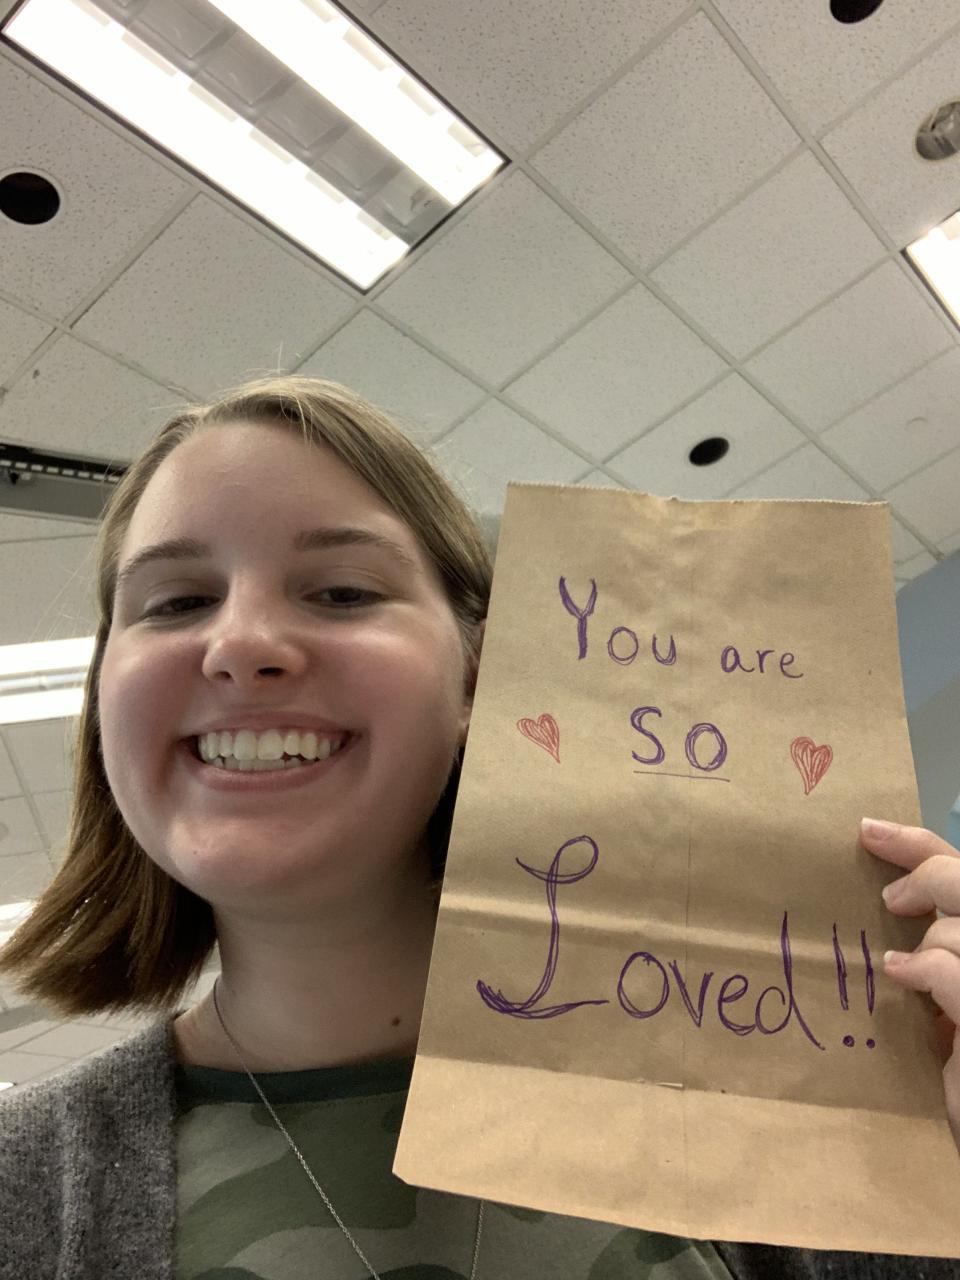 You are
so
Loved!!